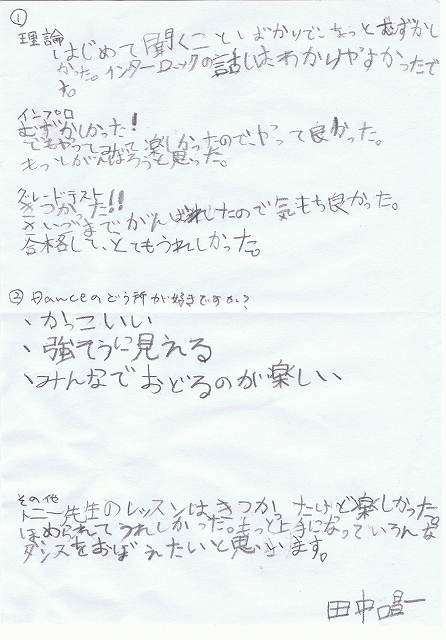 ①
理論
はじめて聞くこといばかりでちょっとむずかし
かった。インターロックの話しはわかりやすかったで
す。
インプロ
むずかしかった!
でもやってみて楽しかったので、やって良かった。
もっとがんばろうと思った。
グレードテスト
きつかった!!
さいごまでがんばれしたので気もち良かった。
合格して、とてもうれしかった。
② Danceのどう所が好きですか?
、かっこいい
、強そうに見える
、みんなでおどるのが楽しい
その他
トニー先生のレッスンはきつかたけど楽しかった
ほめられてうれしかった。もっと上手になっていろんな
ダンスをおぼえたいと思います。
田中昌一